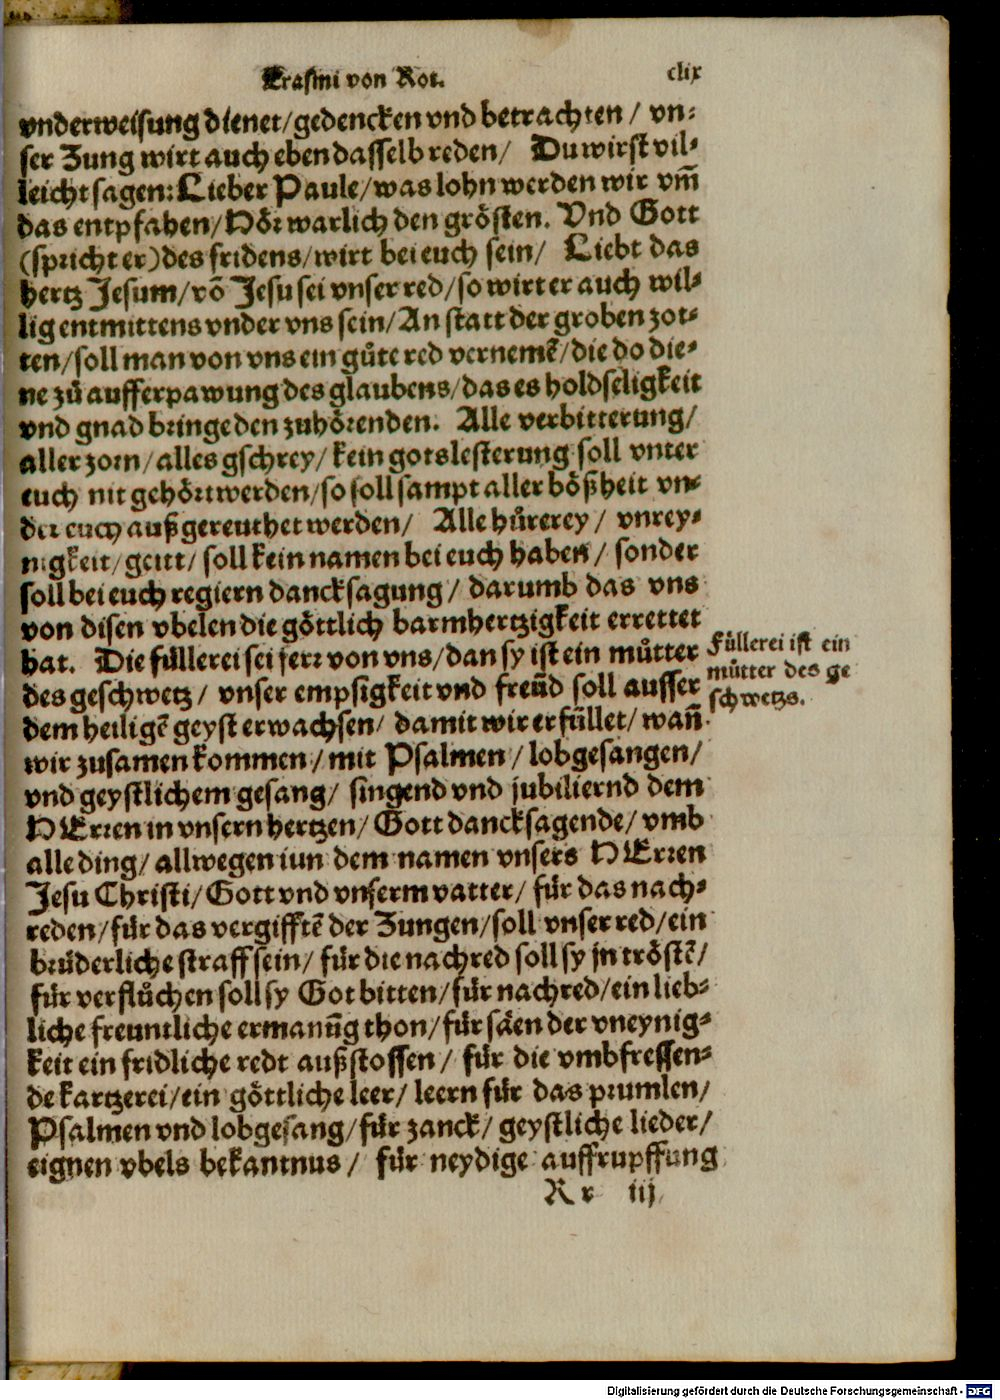 Erasmi von Rot. clix
vnderweisung dienet/gedencken vnd betrachten / vn⸗
ser Zung wirt auch eben dasselb reden/ Du wirst vil⸗
leicht sagen: Lieber Paule/was lohn werden wir vm̃
das entpfahen/Hör warlich den grösten. Vnd Gott
(spricht er) des fridens/wirt bei euch sein/ Liebt das
hertz Jesum/võ Jesu sei vnser red/so wirt er auch wil⸗
lig entmittens vnder vns sein/An statt der groben zot⸗
ten/soll man von vns ein gůte red vernemẽ/die do die⸗
ne zů aufferpawung des glaubens/das es holdseligkeit
vnd gnad bringe den zuhörenden. Alle verbitterung/
aller zorn/alles gschrey/kein gotslesterung soll vnter
euch nit gehört werden/so soll sampt aller bößheit vn⸗
der euch auß gereuthet werden/ Alle hůrerey/ vnrey⸗
nigkeit/geitt/soll kein namen bei euch haben/ sonder
soll bei euch regiern dancksagung/ darumb das vns
von disen vbelen die göttlich barmhertzigkeit errettet
hat. Die füllerei sei ferr von vns/dan sy ist ein můtter
des geschwetz/ vnser empsigkeit vnd freüd soll ausser
dem heiligẽ geyst erwachsen/ damit wir erfüllet/wañ
wir zusamen kommen/mit Psalmen/lobgesangen/
vnd geystlichem gesang/ singend vnd jubiliernd dem
HErren in vnsern hertzen/Gott dancksagende/vmb
alle ding/allwegen inn dem namen vnsers HErren
Jesu Christi/Gott vnd vnserm vatter/ für das nach⸗
reden/für das vergifftẽ der Zungen/soll vnser red/ein
brüderliche straff sein/ für die nachred soll sy jn tröstẽ/
für verflůchen soll sy Got bitten/für nachred/ein lieb⸗
liche freuntliche ermanũg thon/für säen der vneynig⸗
keit ein fridliche redt außstossen/ für die vmbfressen⸗
de kartzerei/ein göttliche leer/leern für das prumlen/
Psalmen vnd lobgesang/für zanck/geystliche lieder/
eignen vbels bekantnus/ für neydige auffrupffung
Füllerei ist ein
můtter des ge
schwetzs.
Rr iij
Digitalisierung gefördert durch die Deutsche Forschungsgemeinschaft - DFG